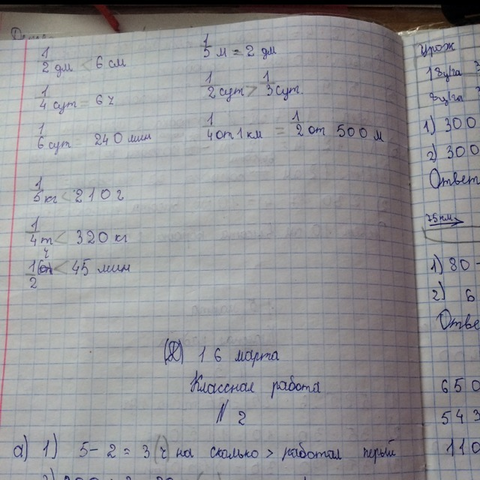 1/2 дм < 6 см
1/4 сут = 6 ч
1/6 сут 240 мин
1/5 м = 2 дм
1/2 сут > 1/3 сут.
1/4 от 1 км = 1/2 от 500 м
1/5 кг < 210 г
1/4 т < 320 кг
1/2 < 45 мин
16 марта
Классная работа
№ 2
а) 1) 5 - 2 = 3 (ч) на сколько > работал перый
Урож
1) 300
2) 300
Ответ
75 км
1) 80 -
2) 6
Отве
650
543
110